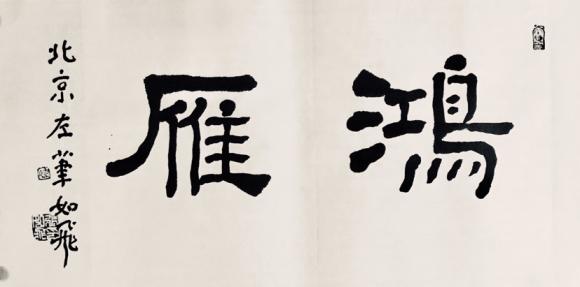 鴻雁
北京左筆如飛